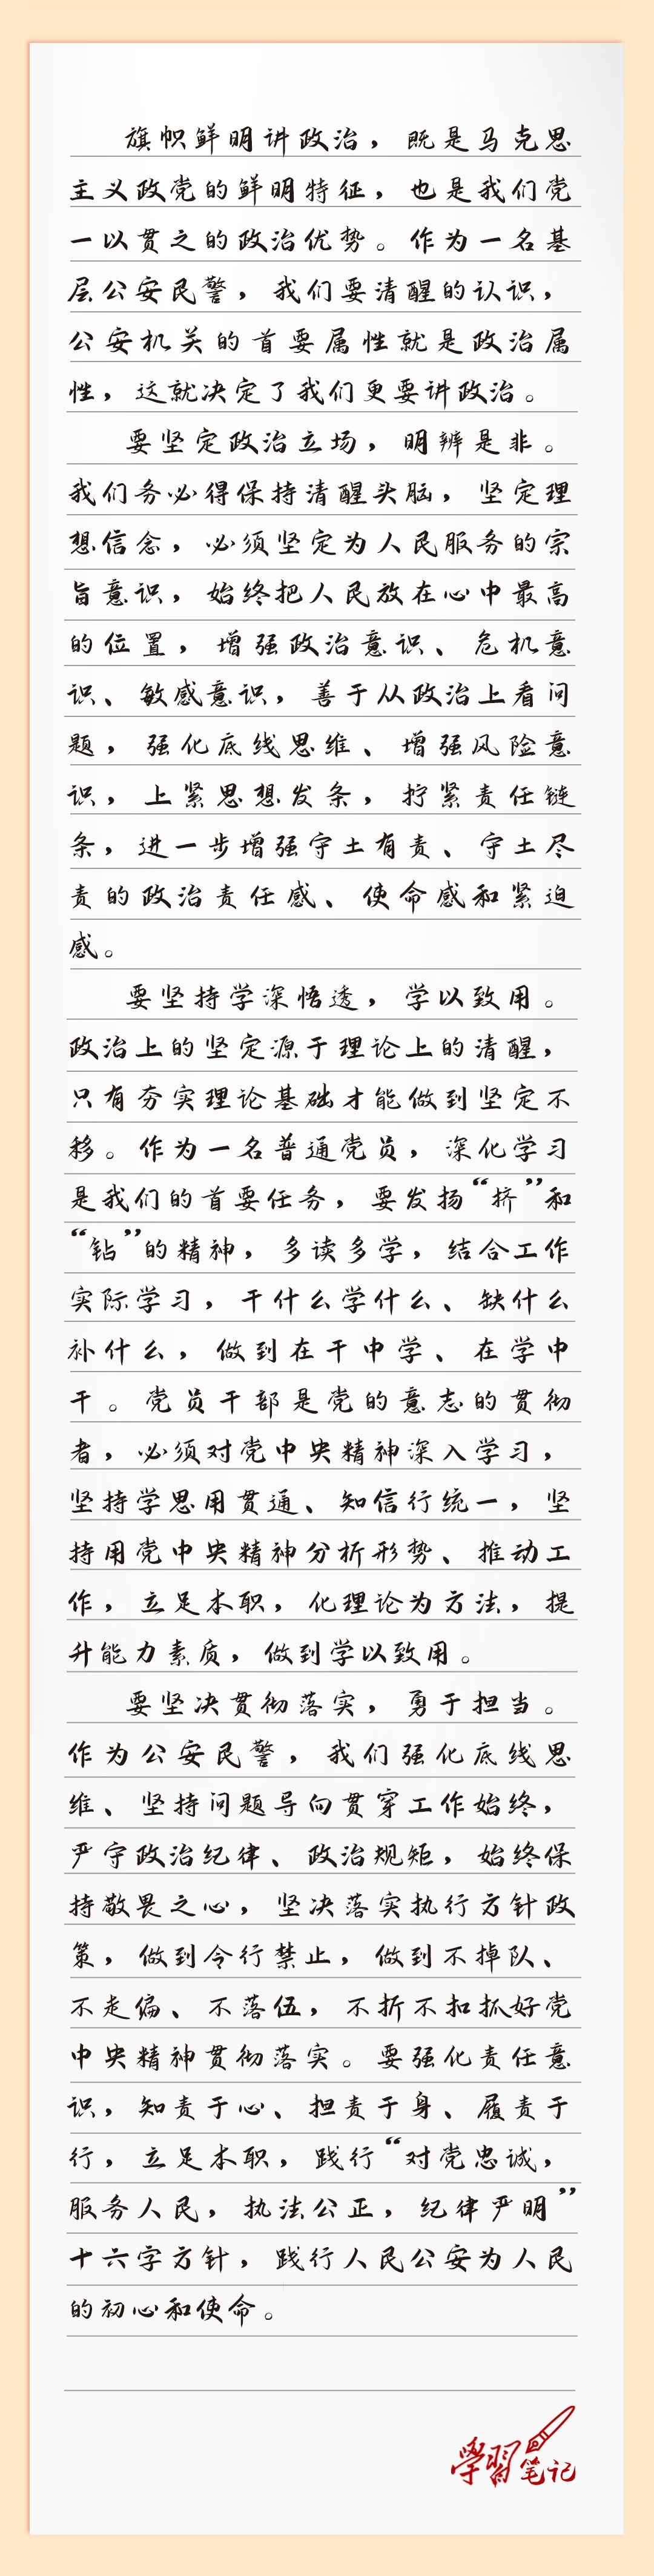 旗帜鲜明讲政治，既是马克思
主义政党的鲜明特征，也是我们党
一以贯之的政治优势。作为一名基
层公安民警，我们要清醒的认识，
公安机关的首要属性就是政治属
性，这就决定了我们更要讲政治。
要坚定政治立场，明辨是非。
我们务必得保持清醒头脑，坚定理
想信念，必须坚定为人民服务的宗
旨意识，始终把人民放在心中最高
的位置，增强政治意识、危机意
识、敏感意识，善于从政治上看问
题，强化底线思维、增强风险意
识，上紧思想发条，拧紧责任链
条，进一步增强守土有责、守土尽
责的政治责任感、使命感和紧迫
感。
要坚持学深悟透，学以致用。
政治上的坚定源于理论上的清醒，
只有夯实理论基础才能做到坚定不
移。作为一名普通党员，深化学习
是我们的首要任务，要发扬“挤”和
“钻”的精神，多读多学，结合工作
实际学习，干什么学什么、缺什么
补什么，做到在干中学、在学中
干。党员干部是党的意志的贯彻
者，必须对党中央精神深入学习，
坚持学思用贯通、知信行统一，坚
持用党中央精神分析形势、推动工
作，立足本职，化理论为方法，提
升能力素质，做到学以致用。
要坚决贯彻落实，勇于担当。
作为公安民警，我们强化底线思
维、坚持问题导向贯穿工作始终，
严守政治纪律、政治规矩，始终保
持敬畏之心，坚决落实执行方针政
策，做到令行禁止，做到不掉队、
不走偏、不落伍，不折不扣抓好党
中央精神贯彻落实。要强化责任意
识，知责于心、担责于身、履责于
行，立足本职，践行“对党忠诚，
服务人民，执法公正，纪律严明”
十六字方针，践行人民公安为人民
的初心和使命。
學習笔记